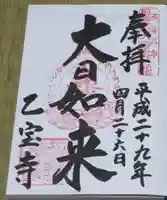 奉拝
平成二十九年
四月二十六日
大日如来
乙宝寺